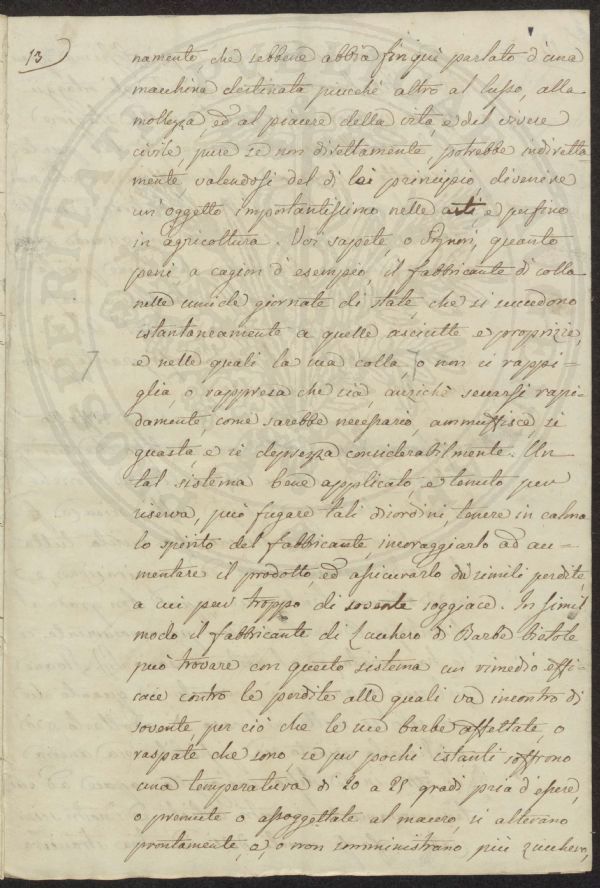 13
namento, che sebbene abbia fin quì parlato d'una
macchina destinata piucchè altro al lusso, alla
mollezza, ed al piacere della vita, e del vivere
civile, pure se non direttamente, potrebbe indiretta-
mente valendosi del di lei principio, divenire
un'oggetto importantissimo nelle arti, e perfino
in agricoltura. Voi sapete, o Signori, quanto
peni a cagion d'esempio, il fabbricante di colla
nelle umide giornate di state, che si succedono
istantaneamente a quelle asciutte e proprizie,
e nelle quali la sua colla, o non si rappi-
glia, o rappresa che sia, anzichè seccarsi rapi-
damente, come sarebbe necessario, ammuffisce, si
guasta, e si deprezza considerabilmente. Un
tal sistema bene applicato, e tenuto per
riserva, può fugare tali disordini, tenere in calma
lo spirito del fabbricante, incoraggiarlo ad au-
mentare il prodotto, ed assicurarlo di simili perdite,
a cui pur troppo di sovente soggiace. In simil
modo il fabbricante di Zucchero di Barbe bietole
può trovare con questo sistema un rimedio effi-
cace contro le perdite alle quali va incontro di
sovente, per ciò che le sue barbe affettate, o
raspate che sono, se per pochi istanti soffrono
una temperatura di 20 a 25 gradi pria d'essere,
o premute o assoggettate al macero, si alterano
prontamente, e, o non somministrano più zucchero,